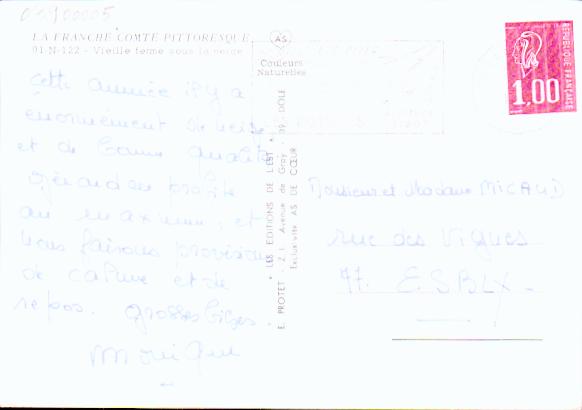 LA FRANCHE COMTE PITTORESQUE
01 N-122 - Vieille ferme sous la neige
AS
Couleurs
Naturelles
RÉPUBLIQUE FRANÇAISE
1,00
Cette année il y a
énormément de neige
et de bonne qualité
Gérard en profite
au maximum, et
nous faisons provision
de calme et de
repos. grosses bises.
Monique
E. PROTET - Z.I. Avenue de Gray - 39 DOLE
* LES EDITIONS DE L'EST *
Exclusivité AS DE CŒUR
Monsieur et Madame MICAUD
rue des Vignes
77. ESBLY